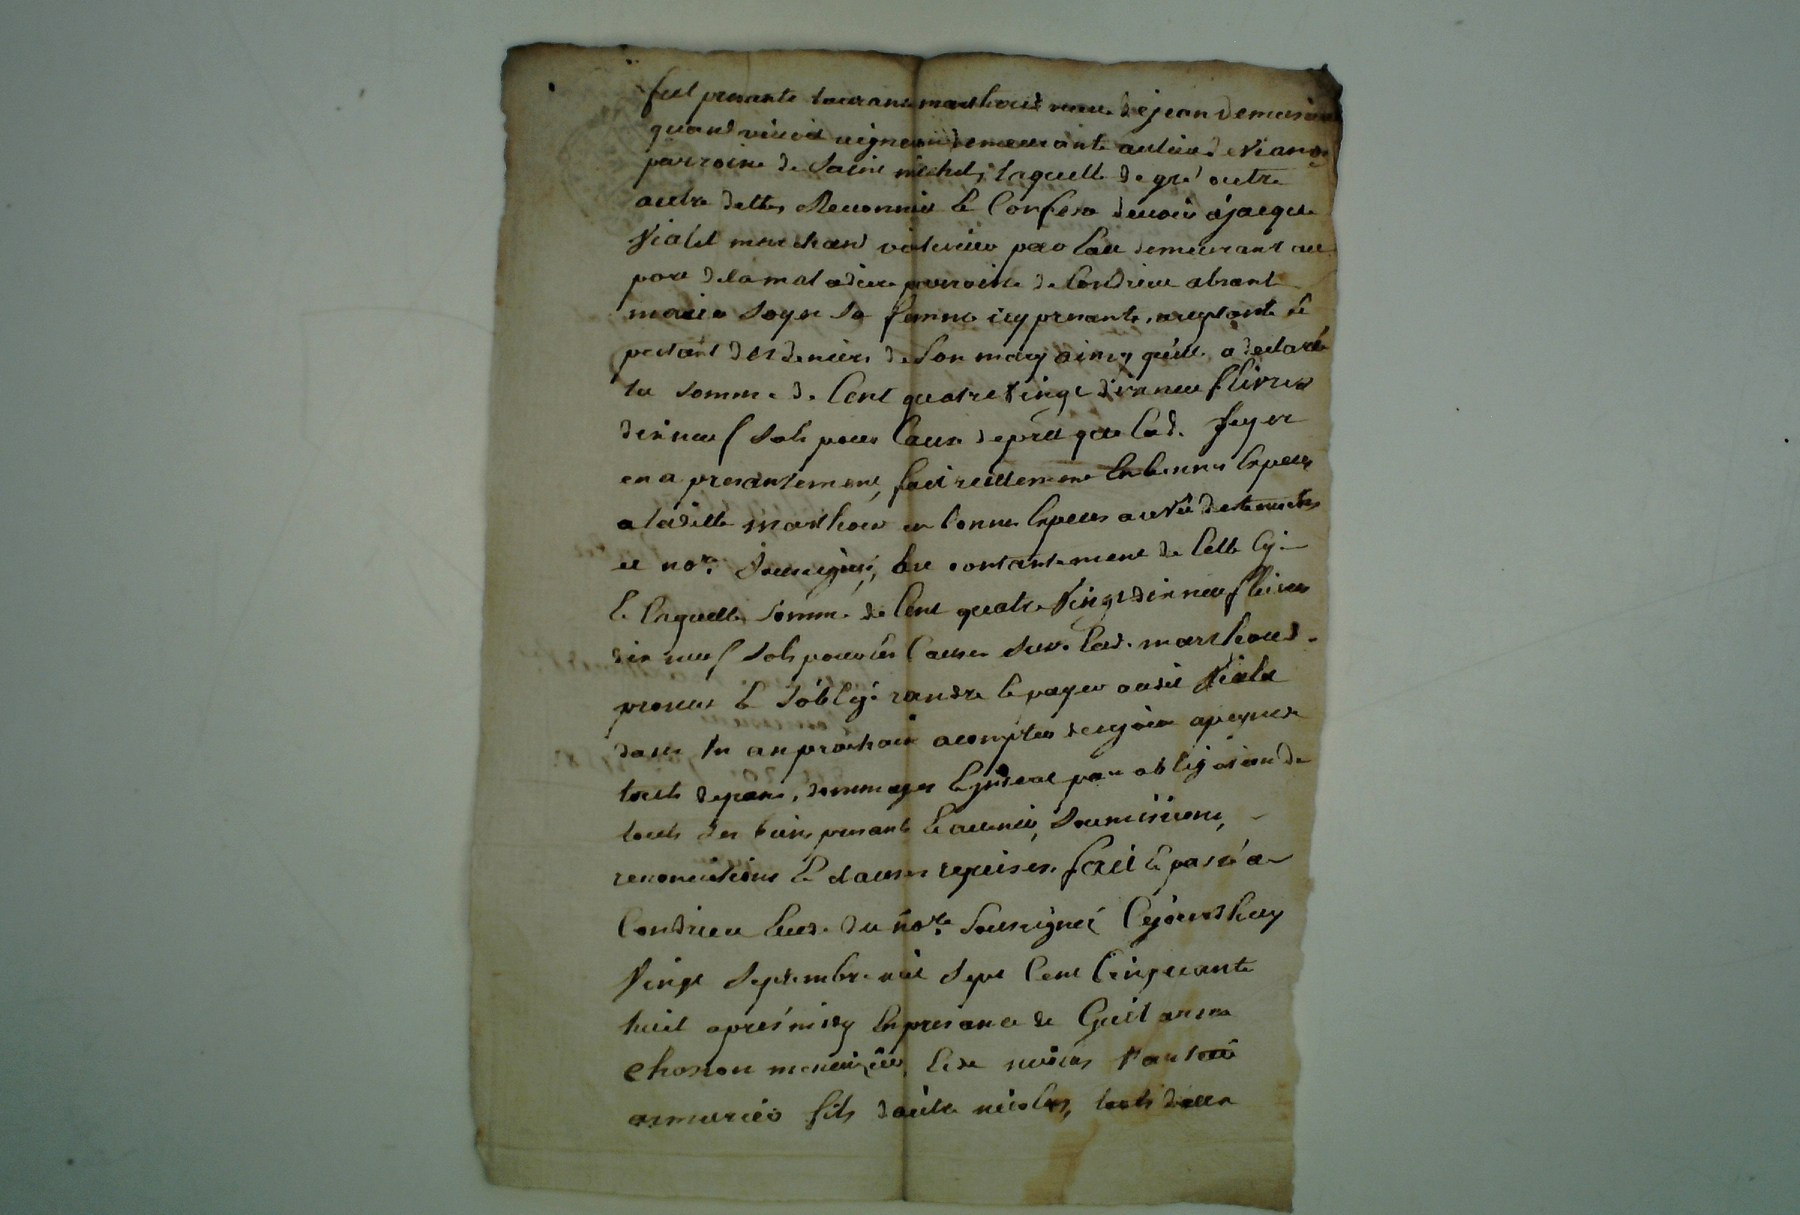 fut presante marthoud veuve de jean
quand vivoit vigneron demeurante au lieu de
parroisse de Saint michel, laquelle de gré outre
autre dettes Reconnu & Confesse devoir à jacque
Vialet marchand voiturier par Eau demeurant au
port de la maladiere parroisse de Condrieu absent
marie sa femme icy presante, acceptante &
des deniers de Son mary ainsy quelle a declaré
la somme de Cent quatre Vingt dix neuf Livres
dix neuf Sols pour Cause de prêt que lad.
en a presentement fait reellement
a ladite marthoud en bonnes Especes au vû des temoins
et no.re Soussigné, au contantement de
Laquelle Somme de Cent quatre Vingt dix neuf Livres
dix neuf Sols pour les Causes Sus. lad. marthoud
promet & s'oblige randre & payer audit Viale
dans Un an prochain a compter de ce jour a peyne de
touts depans, dommages & par obligation de
touts ses biens presants & avenir, Soumissions,
renonciations & clauses requises fait & passé a
Condrieu Etude du no.re Soussigné Cejourdhuy
Vingt Septembre mil Sept Cent Cinquante
huit après midy En presance de
& de
armurier fils d'autre nicolas, touts deux